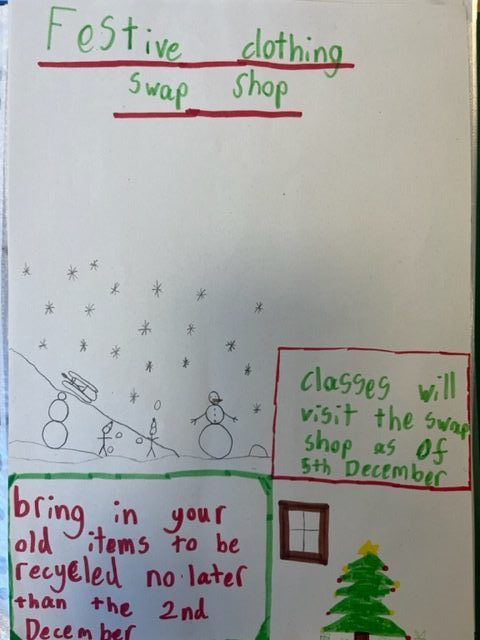 Festive clothing
swap shop
classes will
visit the swap
shop as of
5th December
bring in your
old items to be
recycled no later
than the 2nd
December